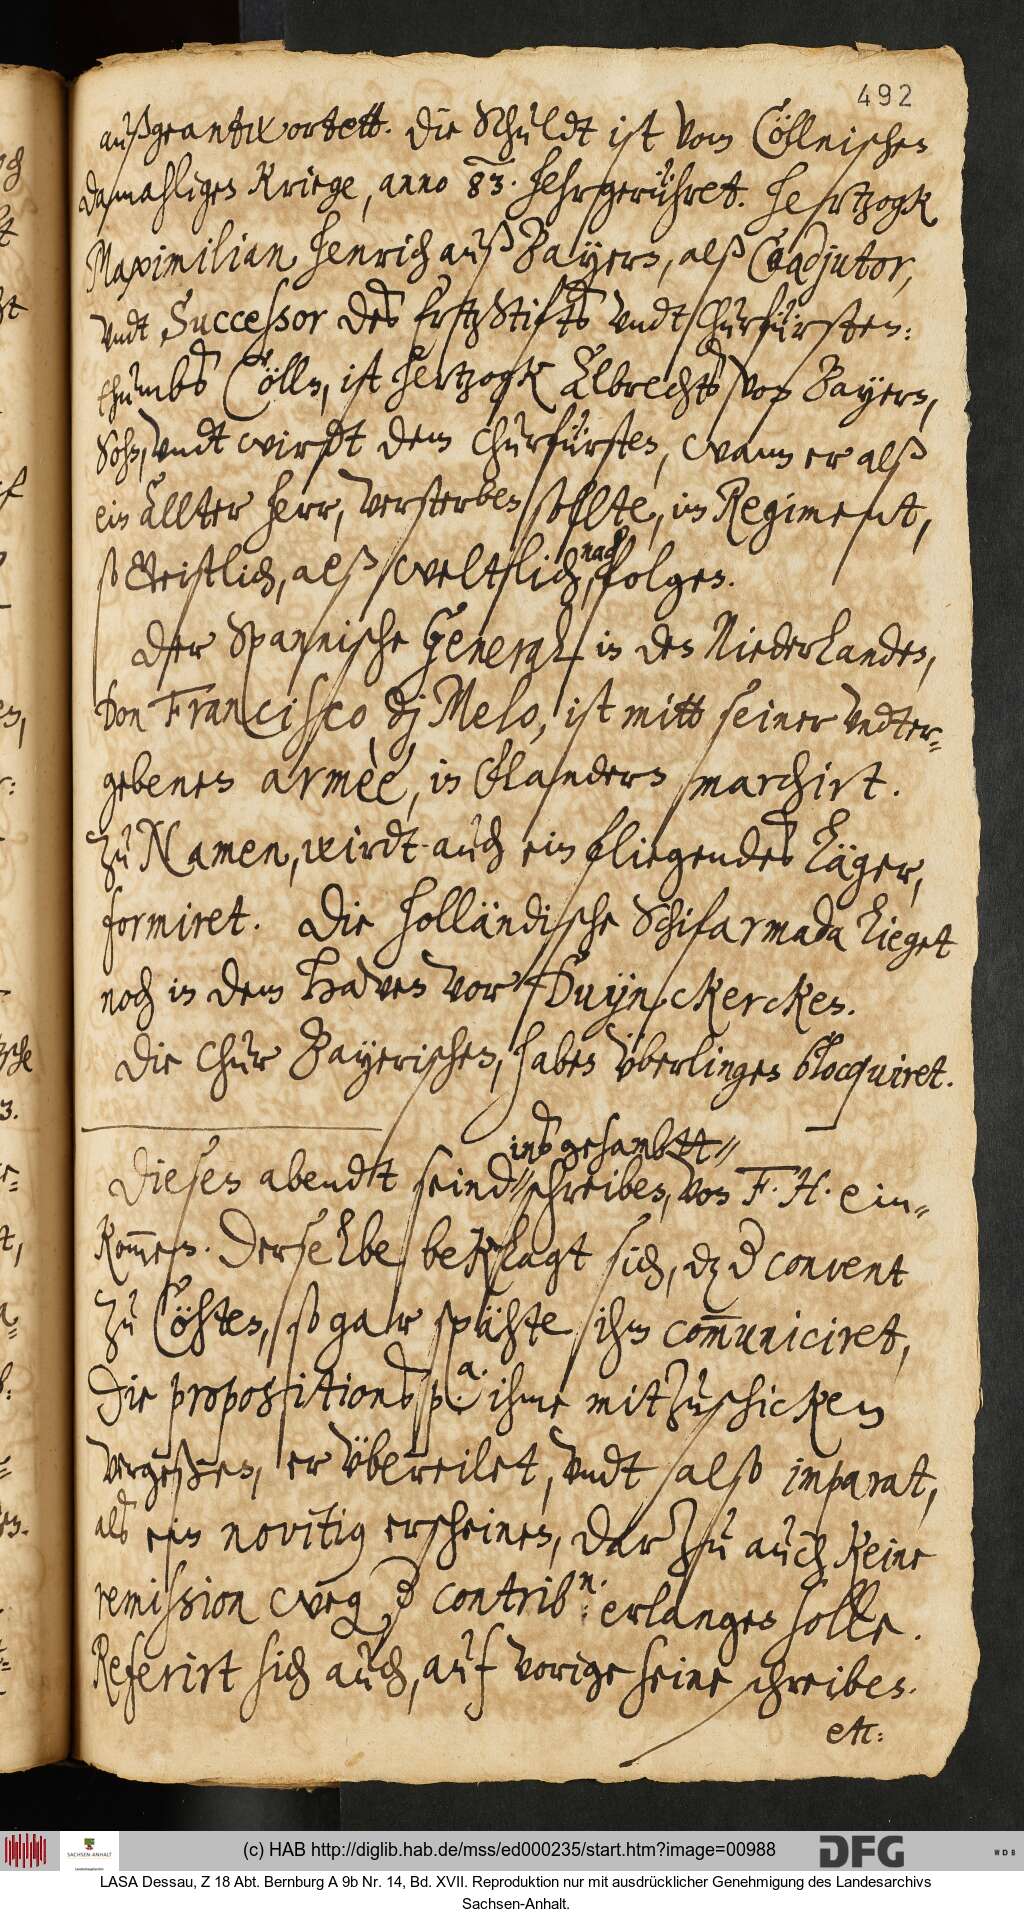 492
außgeantwortett. Die Schuldt ist vom Cöllnischen
damahligen Kriege, anno 83. hehrgerühret. Hertzogk
Maximilian Henrich auß Bayern, alß Coadjutor,
vndt Successor des ErtzStifts vndt Churfürsten¬
thumbs Cölln, ist Hertzogk Albrechts von Bayern,
Sohn, vndt wirdt dem Churfürsten, wann er alß
ein ällter Herr, versterben sollte, im Regiment,
so Geistlich, alß weltlich, nach folgen.
Der Spannische General in den Niederlanden,
Don Francisco dj Melo, ist mitt seiner vndter¬
gebenen armèe, in Flandern marchirt.
Zu Namen, wirdt auch ein fliegendes Läger,
formiret. Die Holländische Schifarmada lieget
noch in dem Haven vor Duynckercken.
Die Chur Bayerischen, haben Überlingen blocquiret.
Diesen abendt seind insgesambtt schreiben, von F. H. ein¬
kom̅en. Derselbe beklagt sich, dz d convent
zu Cöhten, so gar spähte ihm com̅uniciret,
die propositions pa. ihme mitzuschicken
vergeßen, er übereilet, vndt also imparat,
als ein novitiq erscheinen, darzu auch keine
remission weg d contribn: erlangen solle.
Referirt sich auch, auf vorige seine schreiben.
etc:
(c) HAB http://diglib.hab.de/mss/ed000235/start.htm?image=00988
SACHSEN-ANHALT
DFG
WDB
LASA Dessau, Z 18 Abt. Bernburg A 9b Nr. 14, Bd. XVII. Reproduktion nur mit ausdrücklicher Genehmigung des Landesarchivs
Sachsen-Anhalt.